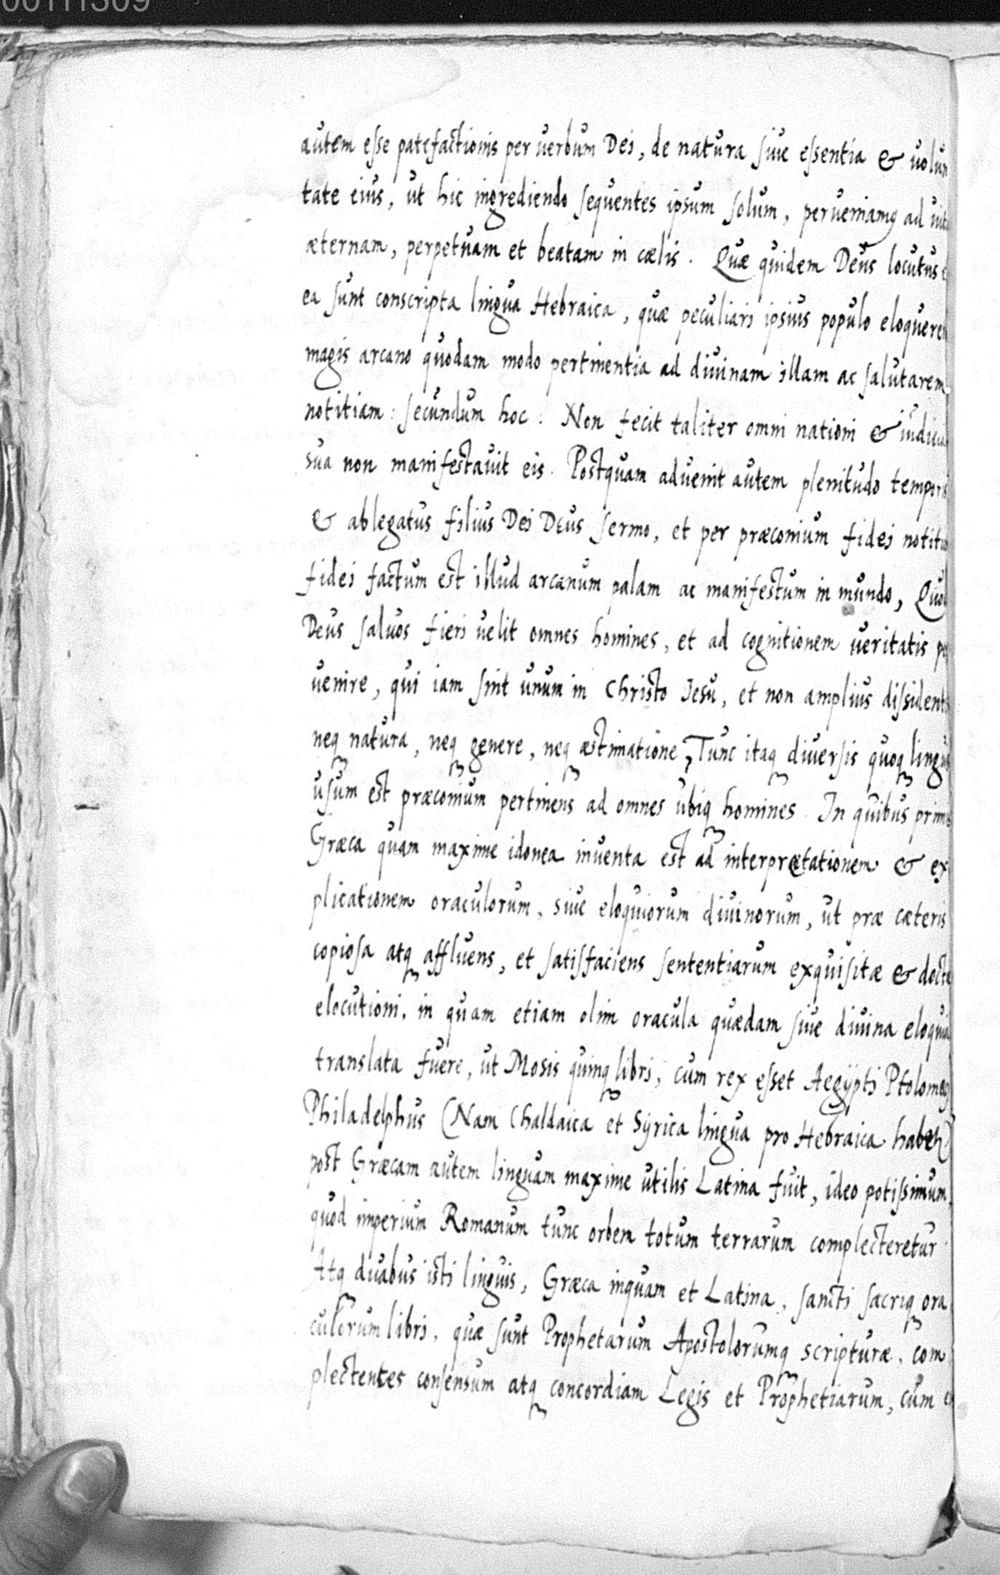 00111309
autem esse patefactionis per verbum Dei, de natura sive essentia & volun
tate eius, ut hic ingrediendo sequentes ipsum solum, perveniamq ad
æternam, perpetuam et beatam in cælis. Quæ quidem Deus locutus
ea sunt conscripta lingua Hebraica, quæ peculiari ipsius populo
magis arcano quodam modo pertinentia ad divinam illam ac salutarem
notitiam: secundum hoc: Non fecit taliter omni nationi &
sua non manifestavit eis. Postquam advenit autem plenitudo temporis
& ablegatus filius Dei Deus sermo, et per præconium fidei
fidei factum est illud arcanum palam ac manifestum in mundo,
Deus salvos fieri velit omnes homines, et ad cognitionem veritatis
venire, qui iam sint unum in Christo Jesu, et non amplius
neq natura, neq genere, neq æstimatione, Tunc itaq diversis quoq
usum est præconium pertinens ad omnes ubiq homines. In quibus
Græca quam maxime idonea inventa est ad interpretationem & ex
plicationem oraculorum, sive eloquiorum divinorum, ut præ cæteris
copiosa atq affluens, et satisfaciens sententiarum exquisitæ &
elocutioni, in quam etiam olim oracula quædam sive divina
translata fuere, ut Mosis quinq libri, cum rex esset Aegypti
Philadelphus (Nam Chaldaica et Syrica lingua pro Hebraica
post Græcam autem linguam maxime utilis Latina fuit, ideo potissimum,
quod imperium Romanum tunc orbem totum terrarum complecteretur
Atq duabus isti linguis, Græca inquam et Latina, sancti sacriq ora
culorum libri, quæ sunt Prophetarum Apostolorumq scripturæ, com
plectentes consensum atq concordiam Legis et Prophetiarum, cum